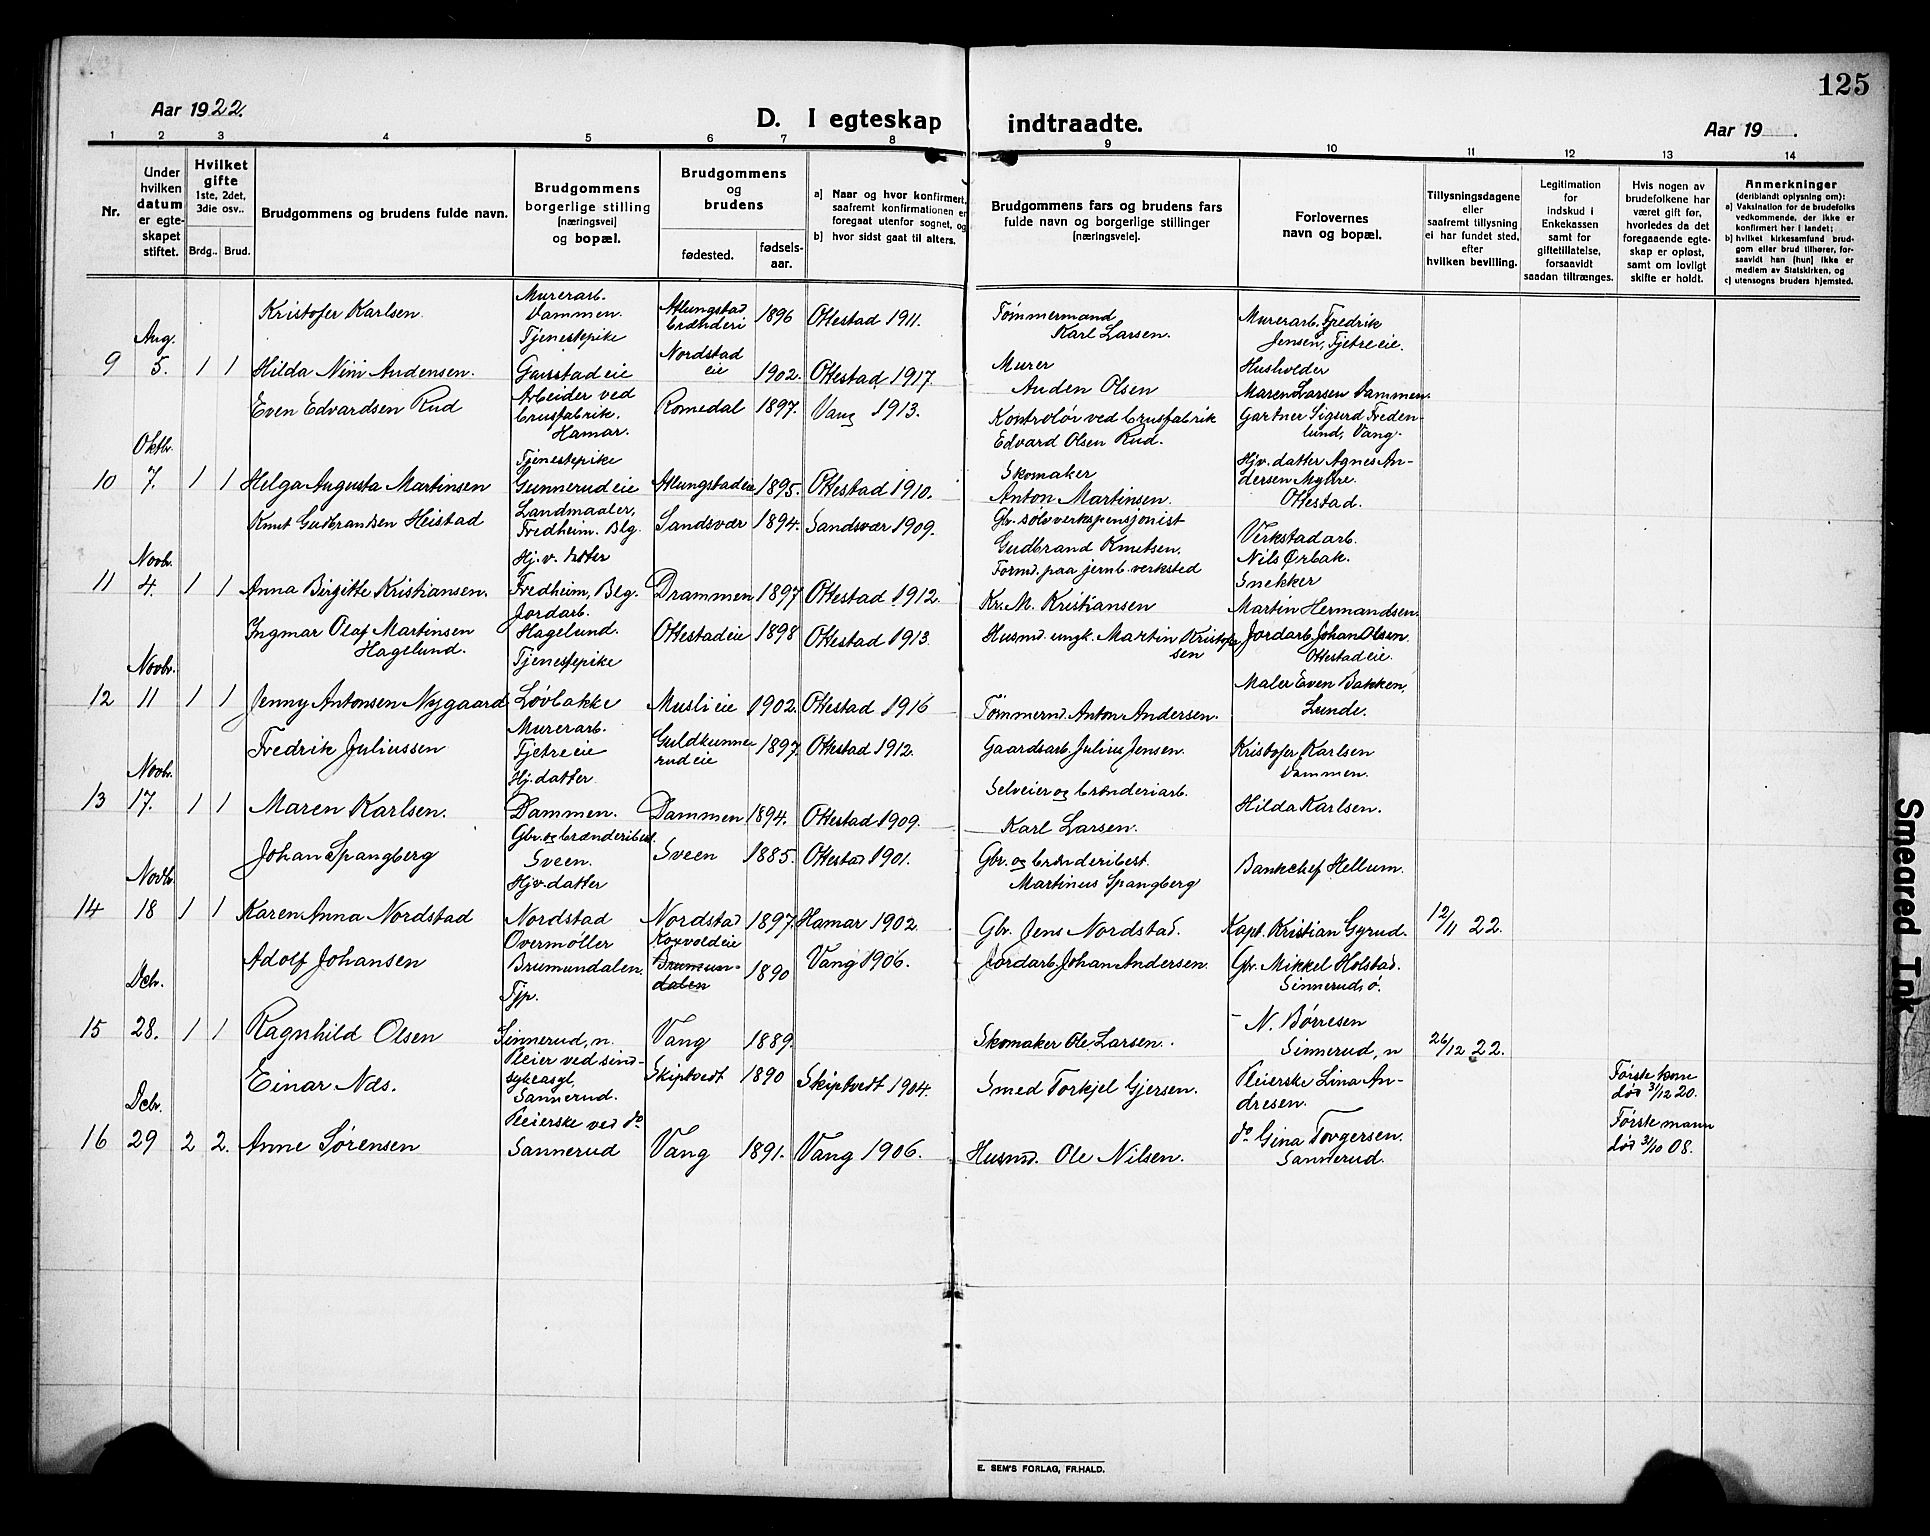 125
Aar 1922.
D. I egteskap indtraadte.
Aar 19 .
1 2 3 4 5 6 7 8 9 10 11 12 13 14
Nr.
Under hvilken datum er egteskapet stiftet.
Hvilket gifte 1ste, 2det, 3die osv..
Brdg.. Brud.
Brudgommens og brudens fulde navn.
Brudgommens borgerlige stilling (næringsvei) og bopæl.
Brudgommens og brudens
fødested.
fødsels-aar.
a) Naar og hvor konfirmert, saafremt konfirmationen er foregaat utenfor sognet, og
b) hvor sidst gaat til alters.
Brudgommens fars og brudens fars fulde navn og borgerlige stillinger (næringsveie).
Forlovernes navn og bopæl.
Tillysningsdagene eller saafremt tillysning ei har fundet sted, efter hvilken bevilling.
Legitimation for indskud i Enkekassen samt for giftetillatelse, forsaavidt saadan tiltrænges.
Hvis nogen av brudefolkene har været gift før, hvorledes da det foregaaende egteskap er opløst, samt om lovlig skifte er holdt.
Anmerkninger (deriblandt oplysning om):
a) Vaksination for de brudefolks vedkommende, der ikke er konfirmert her i landet;
b) hvilket kirkesamfund brudgom eller brud tilhører, forsaavidt han (hun) ikke er medlem av Statskirken, og
c) utensogns bruders hjemsted.
Kristofer Karlsen. Murerarb. Dammen. Atlungstad brænderi 1896 Ottestad 1911. Tømmermand Karl Larsen. Murerarb. Fredrik Jensen, Tjetreeie.
9 Aug. 5. 1 1 Hilda Andensen. Tjenestepike Nordstad eie 1902. Ottestad 1917. Murer Anden Olsen Husholder Maren Larsen Dammen.
Even Edvardsen Rud Arbeider ved brusfabrik. Hamar. Romedal 1897. Vang 1913. Kontrolør ved brusfabrik Edvard Olsen Rud. Gartner Sigurd Fredenlund, Vang.
10 Oktbr. 7. 1 1 Helga Augusta Martinsen Tjenestepike Gunnerudeie Atlungstadeie 1895. Ottestad 1910. Skomaker Anton Martinsen. Hjv. datter Agnes Andersen Myhre Ottestad.
Knut Gudbrandsen Heistad Landmaaler, Fredheim. Blg. Sandsvær 1894. Sandsvær 1909. Gbr. sølvverkspensjonist Gudbrand Knutsen. Verkstadarb. Nils Ørbak.
11 Novbr. 4. 1 1 Anna Birgitte Kristiansen. Hj.v. dtter Fredheim, Blg. Drammen 1897 Ottestad 1912. Formd. paa jernb. verksted Kr. M. Kristiansen Snekker Martin Hermandsen.
Ingmar Olaf Martinsen Hagelund. Jordarb. Hagelund. Ottestadeie 1898 Ottestad 1913. Husmd. ungk. Martin Kristofersen Jordarb. Johan Olsen. Ottestadeie.
12 Novbr. 11 1 1 Jenny Antonsen Nygaard Tjenestepike Løvbakke Muslieie 1902. Ottestad 1916 Tømmermd. Anton Andersen. Maler Even Bakken, Lunde.
Fredrik Juliussen Murerarb. Tjetreeie Guldkunnerudeie 1897. Ottestad 1912. Gaardsarb. Julius Jensen. Kristofer Karlsen Dammen.
13 Novbr. 17. 1 1 Maren Karlsen. Hj. datter Dammen. Dammen 1894. Ottestad 1909. Selveier og brænderiarb. Karl Larsen. Hilda Karlsen.
Johan Spangberg Gbr. og brænderibest. Sveen. Sveen 1885. Ottestad 1901. Gbr. og brænderibest. Martinus Spangberg Bankchef Hellum.
14 Novbr. 18 1 1 Karen Anna Nordstad Hjv. datter Nordstad Nordstad 1897. Hamar 1902. Gbr. Jens Nordstad. Kapt. Kristian Gyrud. 12/11 22.
Adolf Johansen Overmøller Brumundalen. Koxvoldeie Brumundalen 1890 Vang 1906. Jordarb. Johan Andersen. Gbr. Mikkel Holstad. Sinnerud, ø.
15 Dcbr. 28. 1 1 Ragnhild Olsen Tjp. Sinnerud, n. Vang 1889. Skomaker Ole Larsen. - N. Børresen Sinnerud, n 26/12 22.
Einar Nds. Pleier ved sindsykeasyl, Sannerud. Skiptvedt 1890 Skiptvedt 1904. Smed Torkjel Gjersen. Pleierske Lina Andresen. Første kone død 31/12 20.
16 Dcbr. 29 2 2. Anne Sørensen Pleierske ved do Sannerud Vang 1891. Vang 1906. Husmd. Ole Nilsen. do Gina Torgersen. Sannerud. Første mann død 3/10 08.
E. SEM'S FORLAG, FR.HALD.
Smeared Ink